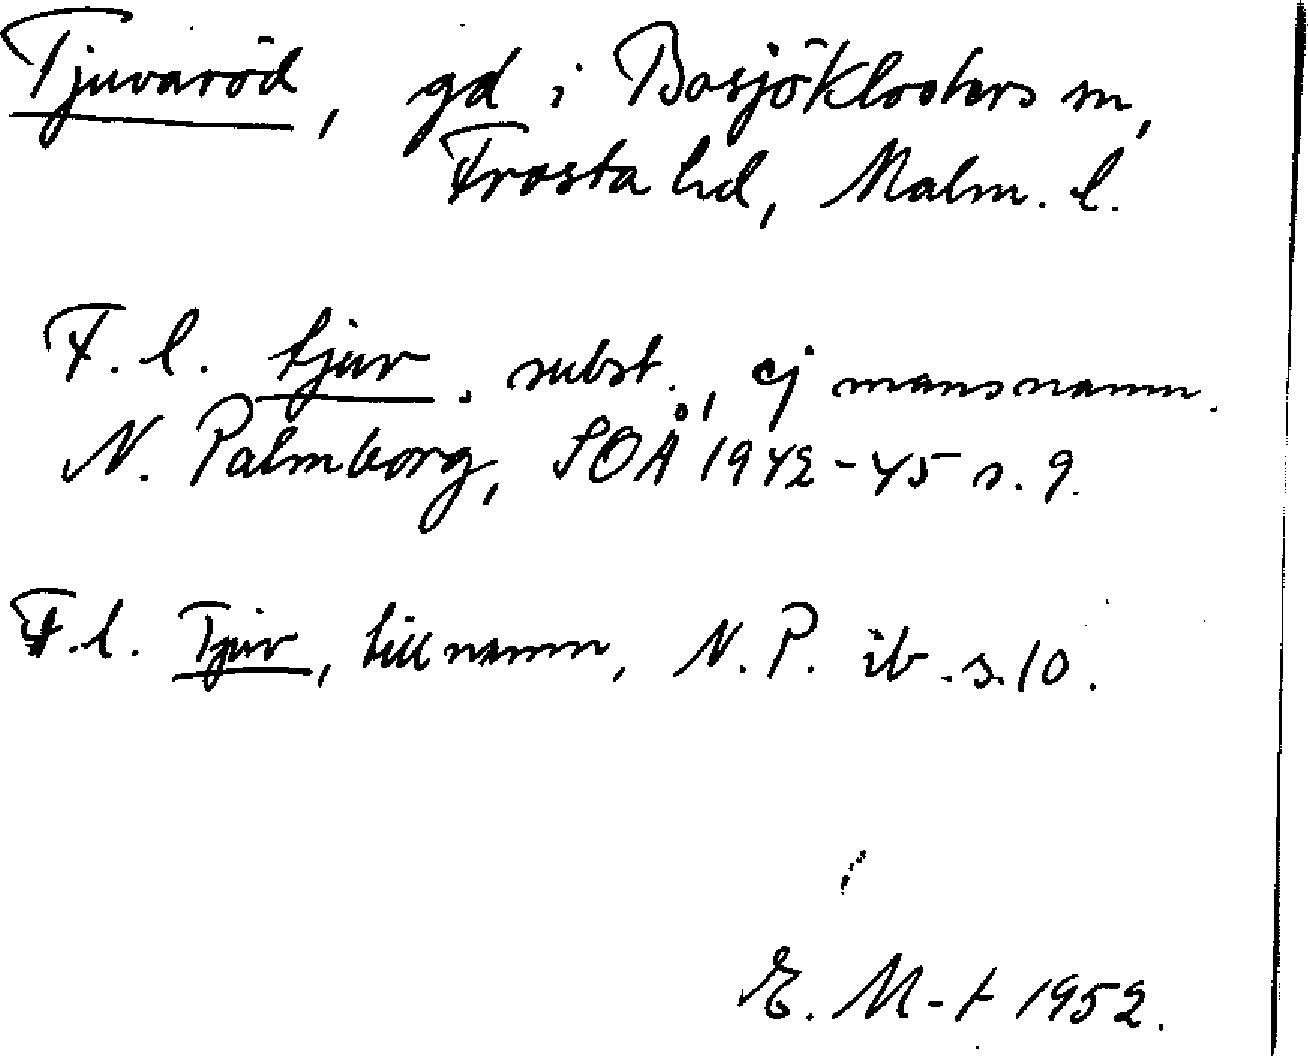 Tjuvaröd, gd i Bosjöklosters sn,
Frosta hd, Malm. l.
F. l. tjuv, subst., ej mansnamn.
N. Palmborg, SOÅ 1942-45 s. 9.
F. l. Tjuv, tillnamn, N. P. ib. s. 10.
E. M-t 1952.